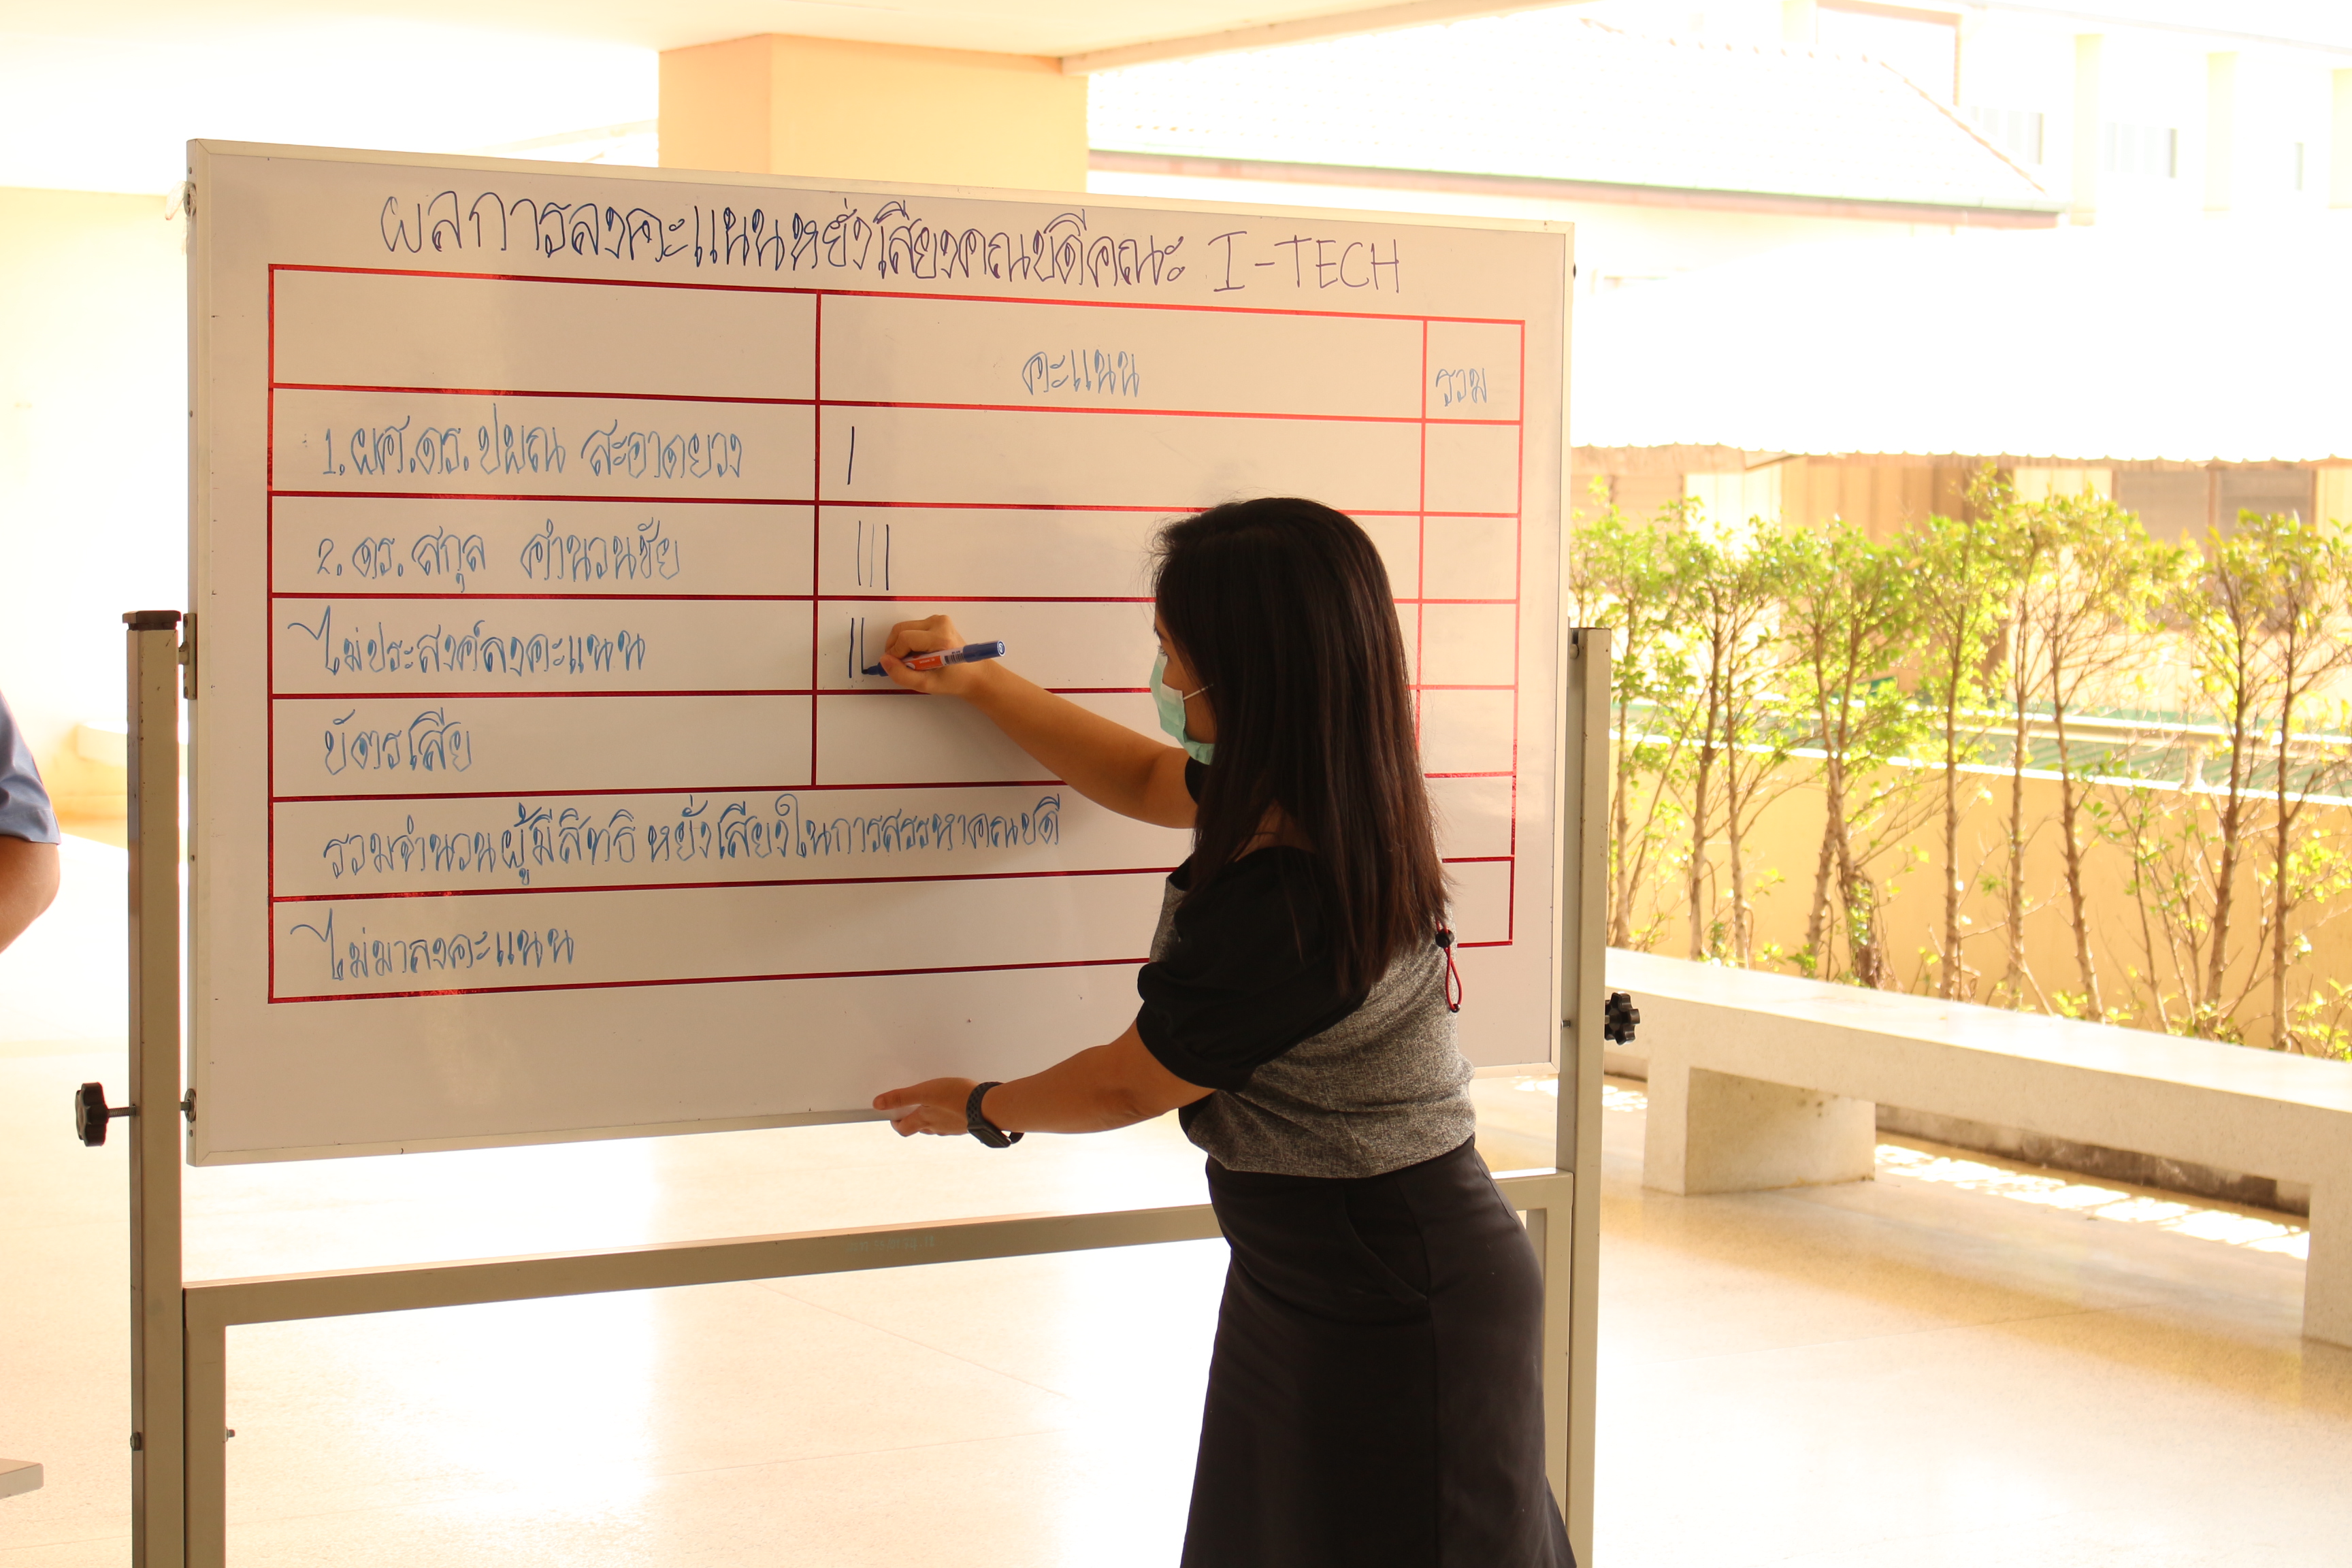 ผลการลงคะแนนหยั่งเสียงคณบดีคณะ I-TECH
คะแนน รวม
1. ผศ.ดร. ปผณ สะอาดยวง |
2. ดร. สกุล คำนวนชัย |||
ไม่ประสงค์ลงคะแนน ||
บัตรเสีย
รวมจำนวนผู้มีสิทธิ หยั่งเสียงในการสรรหาคณบดี
ไม่มาลงคะแนน